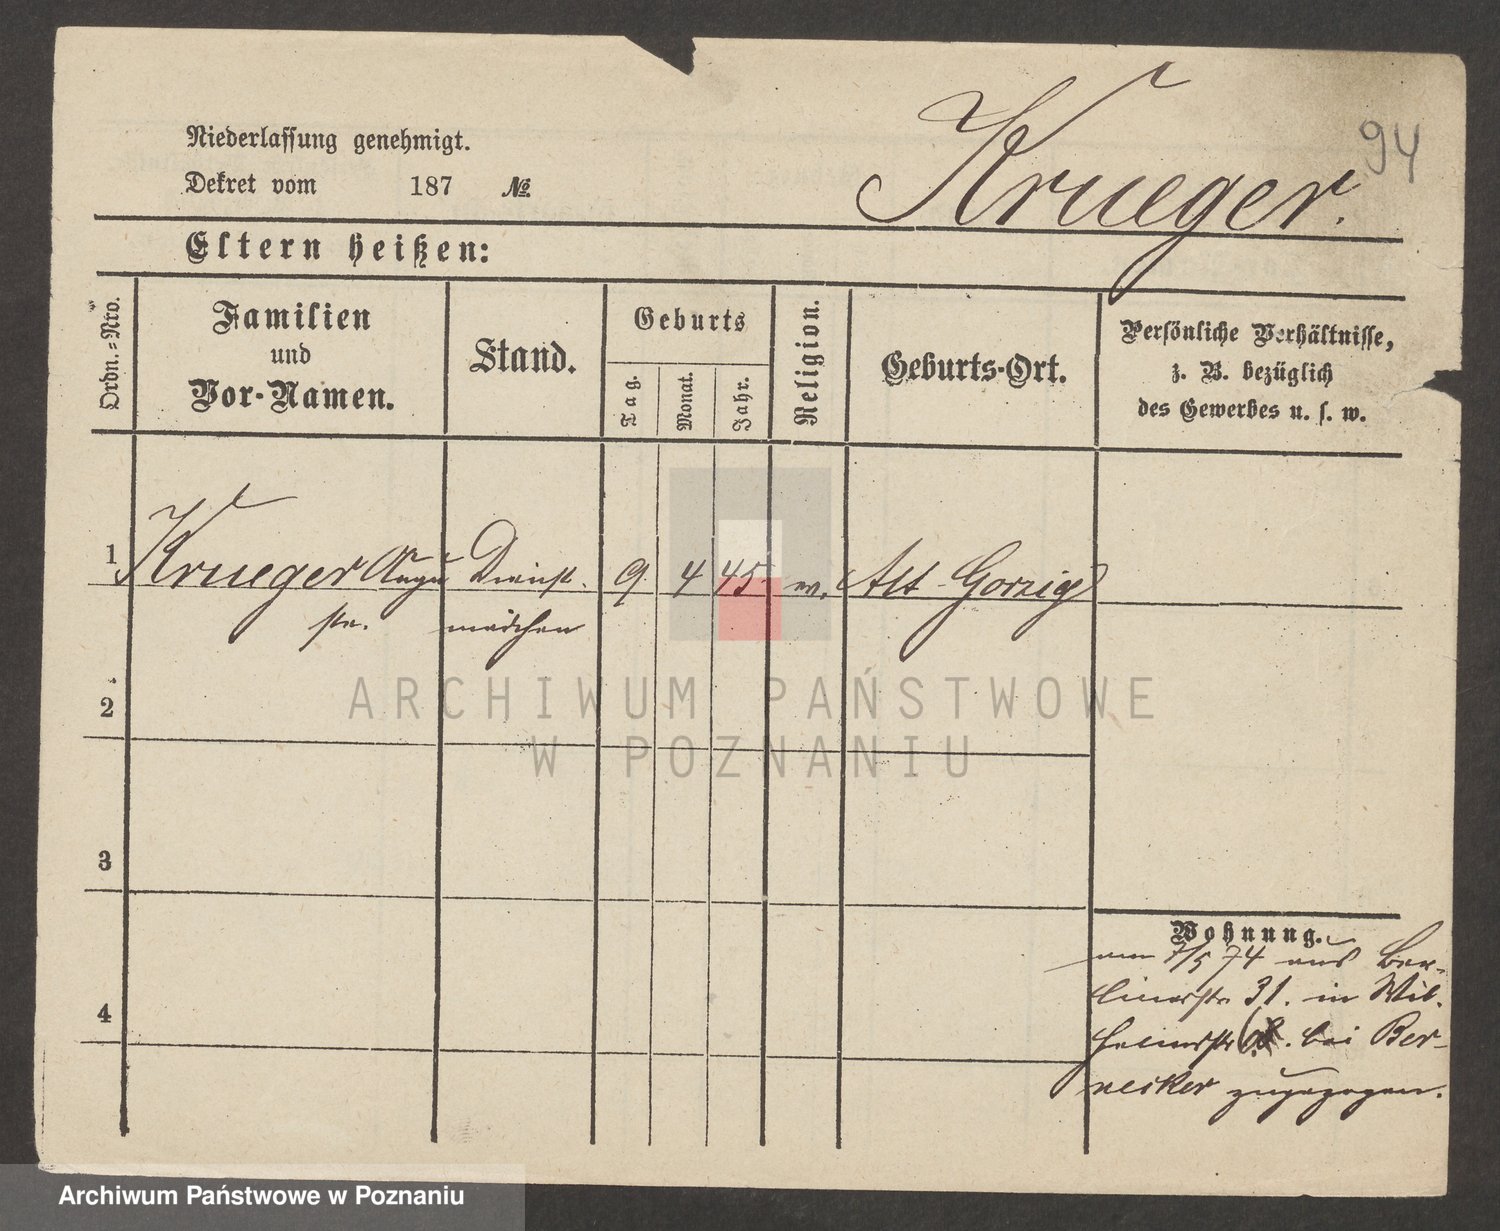 94
Krueger.
Niederlassung genehmigt.
Dekret vom 187 №.
Eltern heißen:
Ordn.-Nro.
Familien
und
Vor-Namen.
Stand.
Geburts
Tag.
Monat.
Jahr.
Religion.
Geburts-Ort.
Persönliche Verhältnisse,
z. B. bezüglich
des Gewerbes u. s. w.
1 Krueger Augu Dienst. 9. 4 45. ev. Alt Gorzig
ste. mädchen
2
3
4
Wohnung.
am 7/5 74 aus Ber-
linerstr. 31. in Wil-
helmstr. bei Ber-
necker zugezogen.
ARCHIWUM PAŃSTWOWE
W POZNANIU
Archiwum Państwowe w Poznaniu